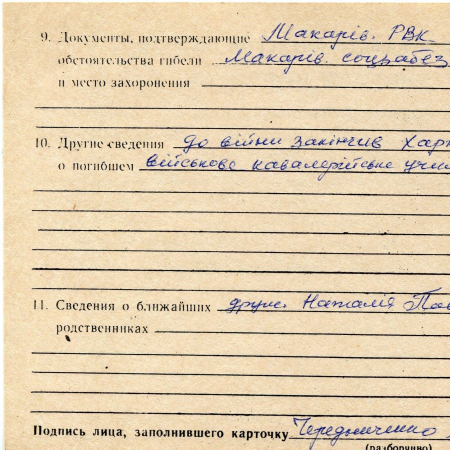 9. Документы, подтверждающие Макарів. РВК
обстоятельства гибели Макарів. соцзабез
и место захоронения
10. Другие сведения До війни закінчив Харк
о погибшем військове кавалерійське учи
11. Сведения о ближайших друж. Наталія Пав
родственниках
Подпись лица, заполнившего карточку Чередниченко
(разборчиво)